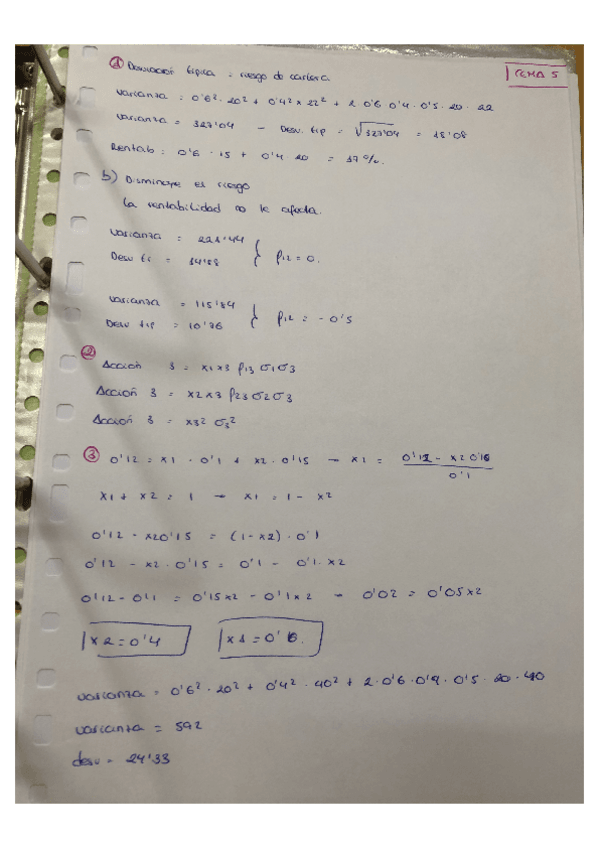 TEMA 5
① Desviación típica = riesgo de cartera.
Varianza = 0'6² · 20² + 0'4² x 22² + 2 0'6 0'4 · 0'5 · 20 · 22
Varianza = 327'04 - Desv. tip = √327'04 = 18'08
Rentab = 0'6 · 15 + 0'4 20 = 17%.
b) Disminuye el riesgo
La rentabilidad no le afecta.
Varianza = 221'44
Desv ti = 14'88 } ρ12 = 0.
Varianza = 115'84
Desv tip = 10'76 } ρ12 = - 0'5
② Acción 3 = x1x3 ρ13 σ1σ3
Acción 3 = x2x3 ρ23 σ2σ3
Acción 3 = x3² σ3²
③ 0'12 = x1 · 0'1 + x2 · 0'15 - x1 = 0'12 - x2 0'15 / 0'1
x1 + x2 = 1 - x1 = 1 - x2
0'12 - x20'15 = (1-x2) · 0'1
0'12 - x2 · 0'15 = 0'1 - 0'1 · x2
0'12 - 0'1 = 0'15x2 - 0'1x2 - 0'02 = 0'05x2
x2 = 0'4 x1 = 0'6.
varianza = 0'6² · 20² + 0'4² · 40² + 2 · 0'6 · 0'4 · 0'5 · 20 · 40
varianta = 592
desv = 24'33